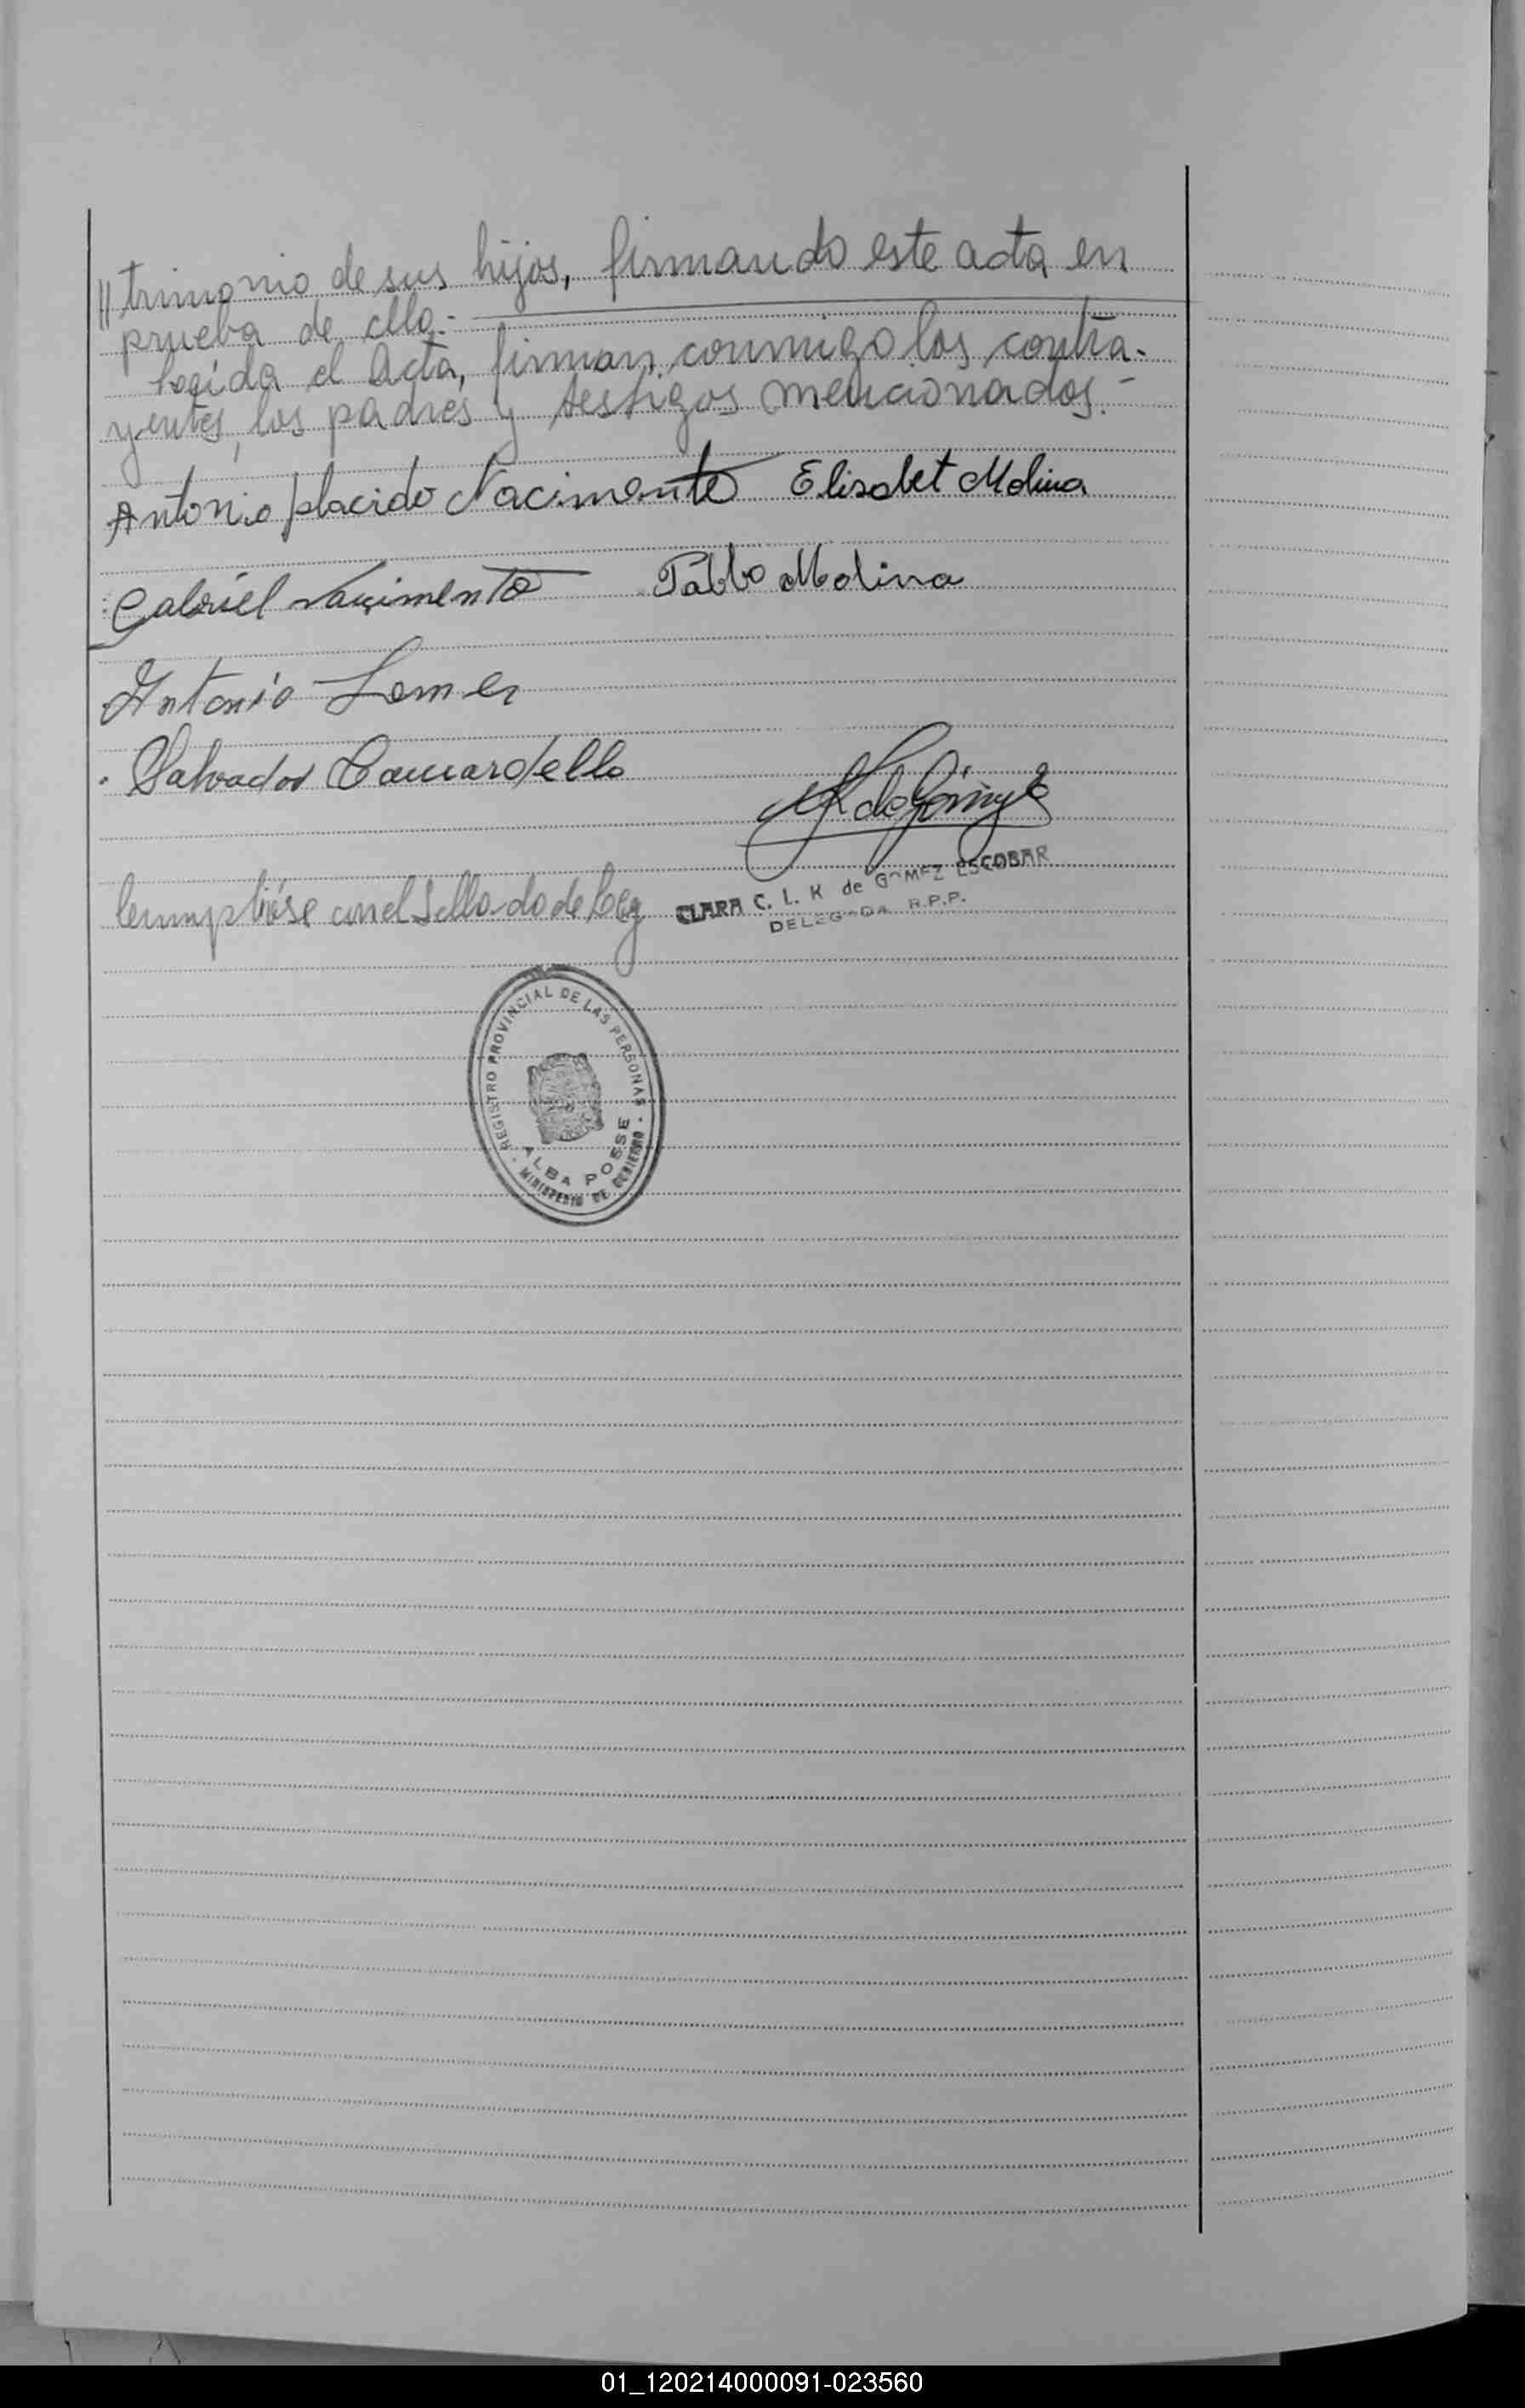 // trimonio de sus hijos, firmando este acta en
prueba de ello.-
Leída el Acta, firman conmigo los contra-
yentes, los padres y testigos mencionados.-
Antonio placido Nacimento Elisabet Molina
Gabriel Nacimento Pablo Molina
Antonio
Salvador Camardello
CLARA C. L. K de GOMEZ ESCOBAR
DELEGADA R.P.P.
Cumplióse con el Sellado de Ley
REGISTRO PROVINCIAL DE LAS PERSONAS
ALBA POSSE
MINISTERIO DE GOBIERNO
01_120214000091-023560